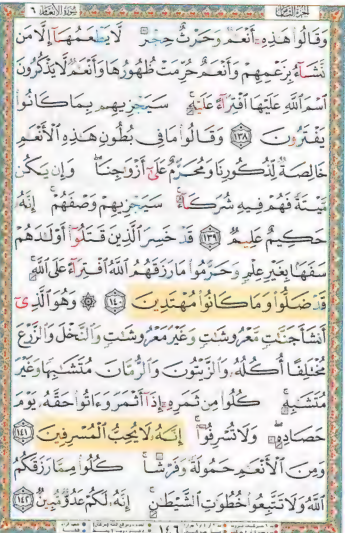 سُورَةُ الأَنْعَامِ ٦
وَقَالُوا هَٰذِهِ أَنْعَٰمٌ وَحَرْثٌ حِجْرٌ لَّا يَطْعَمُهَا إِلَّا مَن
نَّشَآءُ بِزَعْمِهِمْ وَأَنْعَٰمٌ حُرِّمَتْ ظُهُورُهَا وَأَنْعَٰمٌ لَّا يَذْكُرُونَ
ٱسْمَ ٱللَّهِ عَلَيْهَا ٱفْتِرَآءً عَلَيْهِ سَيَجْزِيهِم بِمَا كَانُوا
يَفْتَرُونَ ١٣٨ وَقَالُوا مَا فِى بُطُونِ هَٰذِهِ ٱلْأَنْعَٰمِ
خَالِصَةٌ لِّذُكُورِنَا وَمُحَرَّمٌ عَلَىٰٓ أَزْوَٰجِنَا وَإِن يَكُن
مَّيْتَةً فَهُمْ فِيهِ شُرَكَآءُ سَيَجْزِيهِمْ وَصْفَهُمْ إِنَّهُۥ
حَكِيمٌ عَلِيمٌ ١٣٩ قَدْ خَسِرَ ٱلَّذِينَ قَتَلُوٓا أَوْلَٰدَهُمْ
سَفَهًۢا بِغَيْرِ عِلْمٍ وَحَرَّمُوا مَا رَزَقَهُمُ ٱللَّهُ ٱفْتِرَآءً عَلَى ٱللَّهِ
قَدْ ضَلُّوا وَمَا كَانُوا مُهْتَدِينَ ١٤٠ ۞ وَهُوَ ٱلَّذِىٓ
أَنشَأَ جَنَّٰتٍ مَّعْرُوشَٰتٍ وَغَيْرَ مَعْرُوشَٰتٍ وَٱلنَّخْلَ وَٱلزَّرْعَ
مُخْتَلِفًا أُكُلُهُۥ وَٱلزَّيْتُونَ وَٱلرُّمَّانَ مُتَشَٰبِهًا وَغَيْرَ
مُتَشَٰبِهٍ كُلُوا مِن ثَمَرِهِۦٓ إِذَآ أَثْمَرَ وَءَاتُوا حَقَّهُۥ يَوْمَ
حَصَادِهِۦ وَلَا تُسْرِفُوٓا إِنَّهُۥ لَا يُحِبُّ ٱلْمُسْرِفِينَ ١٤١
وَمِنَ ٱلْأَنْعَٰمِ حَمُولَةً وَفَرْشًا كُلُوا مِمَّا رَزَقَكُمُ
ٱللَّهُ وَلَا تَتَّبِعُوا خُطُوَٰتِ ٱلشَّيْطَٰنِ إِنَّهُۥ لَكُمْ عَدُوٌّ مُّبِينٌ ١٤٢
١٤٦